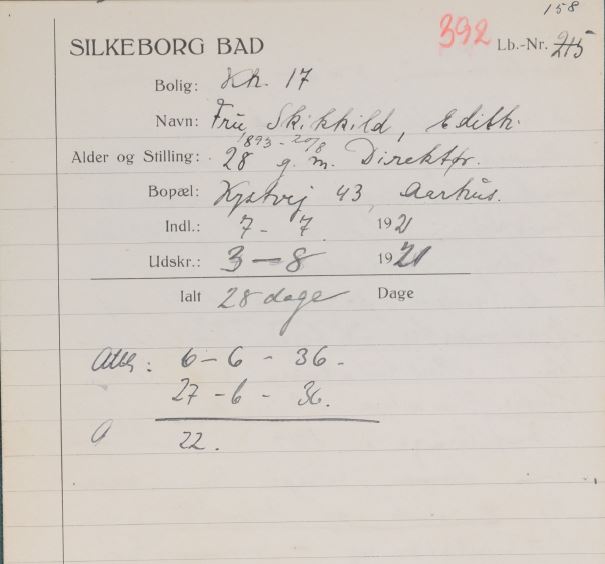 158
SILKEBORG BAD 392 Lb.-Nr. 215
Bolig: Kh. 17
Navn: Fru Skikkild, Edith.
1893 - 20/8
Alder og Stilling: 28 g. m. Direktør.
Bopæl: Kystvej 43, Aarhus.
Indl.: 7 - 7 1921
Udskr.: 3 - 8 1921
Ialt 28 dage Dage
6 - 6 - 36.
27 - 6 - 36.
22.